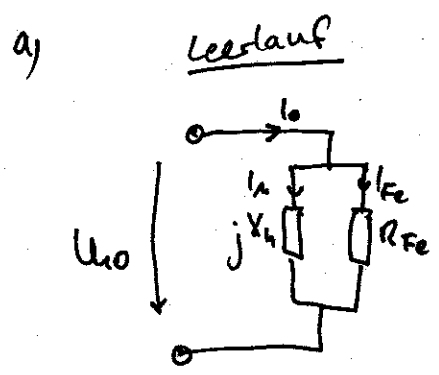 a) Leerlauf
I₀
Iₕ I_Fe
U₁₀ jXₕ R_Fe